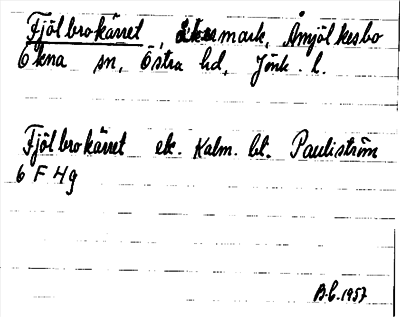 Fjölbrokärret, åkermark, Åmjölkesbo
Ökna sn, Östra hd, Jönk. l.
Fjölbrokärret ek. Kalm. bl. Pauliström
6 F 4g
B.G. 1957